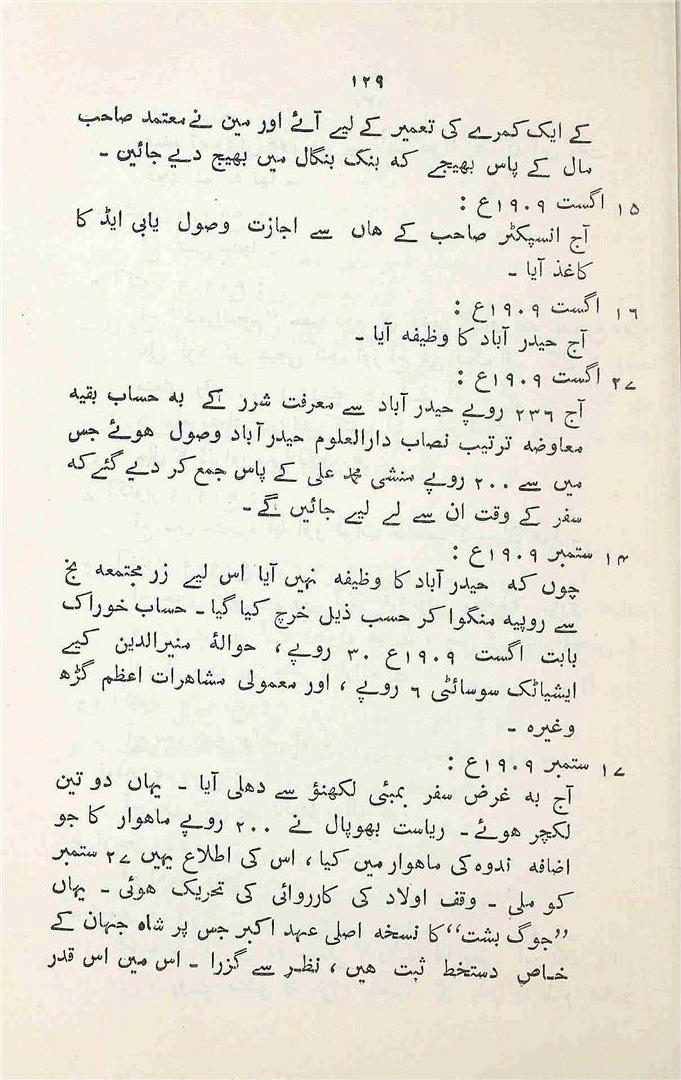 ۱۲۹
کے ایک کمرے کی تعمیر کے لیے آئے اور مین نے معتمد صاحب
مال کے پاس بھیجے کہ بنک بنگال میں بھیج دیے جائین ۔
۱۵ اگست ۱۹۰۹ع :
آج انسپکٹر صاحب کے ھاں سے اجازت وصول یابی ایڈ کا
کاغذ آیا ۔
۱۶ اگست ۱۹۰۹ع :
آج حیدر آباد کا وظیفہ آیا ۔
۲۷ اگست ۱۹۰۹ع :
آج ۲۳۶ روپے حیدر آباد سے معرفت شرر کے بہ حساب بقیہ
معاوضہ ترتیب نصاب دارالعلوم حیدرآباد وصول ھوئے جس
میں سے ۲۰۰ روپے منشی محمد علی کے پاس جمع کر دیے گئے کہ
سفر کے وقت ان سے لے لیے جائیں گے۔
۱۴ ستمبر ۱۹۰۹ع :
چوں کہ حیدر آباد کا وظیفہ نہیں آیا اس لیے زر مجتمعہ بخ
سے روپیہ منگوا کر حسب ذیل خرچ کیا گیا ۔ حساب خوراک
بابت اگست ۱۹۰۹ع ۳۰ روپے، حوالۂ منیرالدین کیے
ایشیاٹک سوسائٹی ۶ روپے، اور معمولی مشاھرات اعظم گڑھ
وغیرہ ۔
۱۷ ستمبر ۱۹۰۹ع :
آج بہ غرض سفر بمبئی لکھنؤ سے دھلی آیا ۔ یہاں دو تین
لکچر ھوئے۔ ریاست بھوپال نے ۲۰۰ روپے ماھوار کا جو
اضافہ ندوہ کی ماھوار میں کیا، اس کی اطلاع یہیں ۲۷ ستمبر
کو ملی ۔ وقف اولاد کی کارروائی کی تحریک ھوئی ۔ یہاں
”جوگ بشت“ کا نسخہ اصلی عہد اکبر جس پر شاہ جہان کے
خاص دستخط ثبت ھیں، نظر سے گزرا ۔ اس میں اس قدر